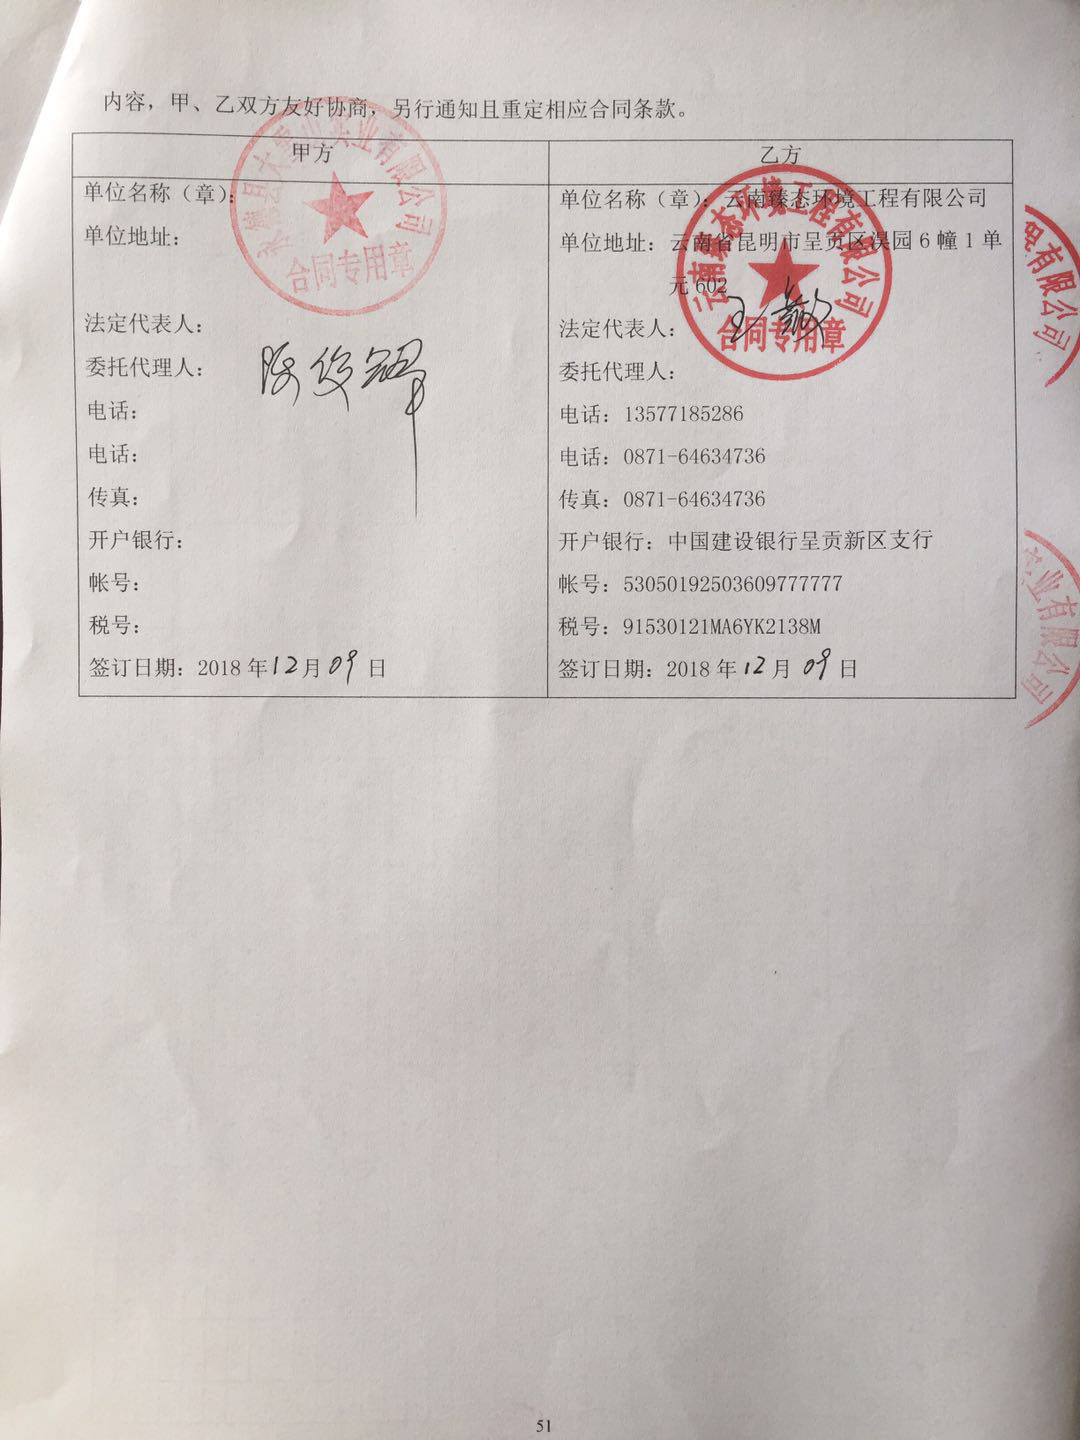 内容，甲、乙双方友好协商，另行通知且重定相应合同条款。
甲方
单位名称（章）：
单位地址：
法定代表人：
委托代理人：
电话：
电话：
传真：
开户银行：
帐号：
税号：
签订日期：2018 年 12 月 09 日
合同专用章
乙方
单位名称（章）：云南臻态环境工程有限公司
单位地址：云南省昆明市呈贡区淏园 6 幢 1 单
元 602
法定代表人：
委托代理人：
电话：13577185286
电话：0871-64634736
传真：0871-64634736
开户银行：中国建设银行呈贡新区支行
帐号：53050192503609777777
税号：91530121MA6YK2138M
签订日期：2018 年 12 月 09 日
云南臻态环境工程有限公司
合同专用章
程有限公司
实业有限公司
51